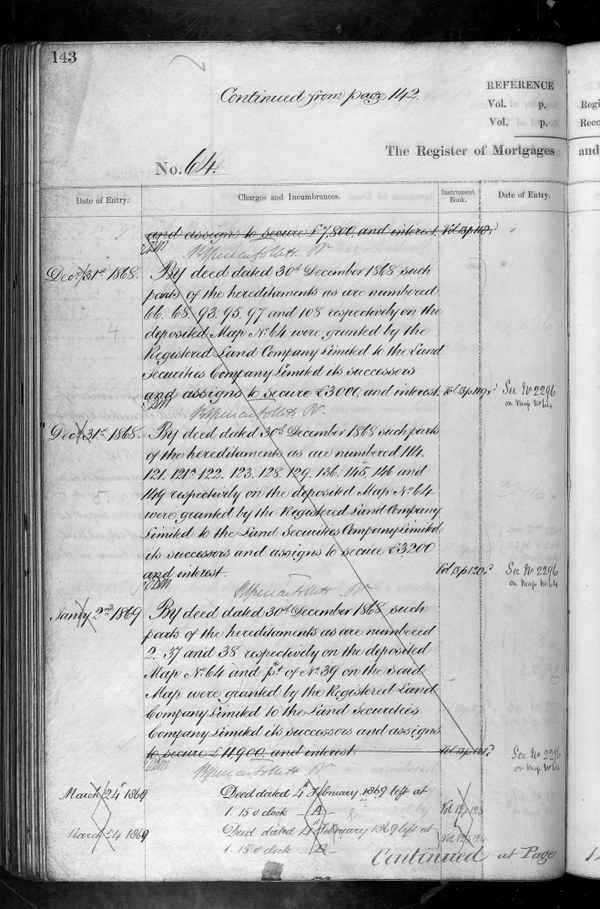 143
Continued from page 142.
REFERENCE
Vol. p.
Vol. p.
Regi
Reco
The Register of Mortgages and
No. 64.
Date of Entry. Charges and Incumbrances. Instrument Book. Date of Entry.
and assigns to secure £7,800, and interest. Vol 13 p 118
Decr 31st 1868. By deed dated 30th December 1868 such
parts of the hereditaments as are numbered
66. 68. 93. 95. 97 and 108 respectively on the
deposited Map No 64 were granted by the
Registered Land Company Limited to the Land
Securities Company Limited its successors
and assigns to secure £3000, and interest. Vol 13 p 119 See No 2296
on Map No 64
Decr 31st 1868. By deed dated 30th December 1868 such parts
of the hereditaments as are numbered 114.
121. 121a 122. 123. 128. 129. 136. 145. 146 and
149 respectively on the deposited Map No 64
were granted by the Registered Land Company
Limited to the Land Securities Company Limited
its successors and assigns to secure £3,200
and interest. Vol 13 p 120 See No 2296
on Map No 64
Jany 2nd 1869 By deed dated 30th December 1868 such
parts of the hereditaments as are numbered
2. 37 and 38 respectively on the deposited
Map No 64 and pt of No 39 on the said
Map were granted by the Registered Land
Company Limited to the Land Securities
Company Limited its successors and assigns
to secure £4,900 and interest. Vol 13 p 121 See No 2296
on Map No 64
March 24 1869 Deed dated 4th February 1869 left at Vol 12 p 123
1. 15 o clock A
March 24 1869 Deed dated 4th February 1869 left at Vol 12 p 124
1. 15 o clock B
Continued at Page